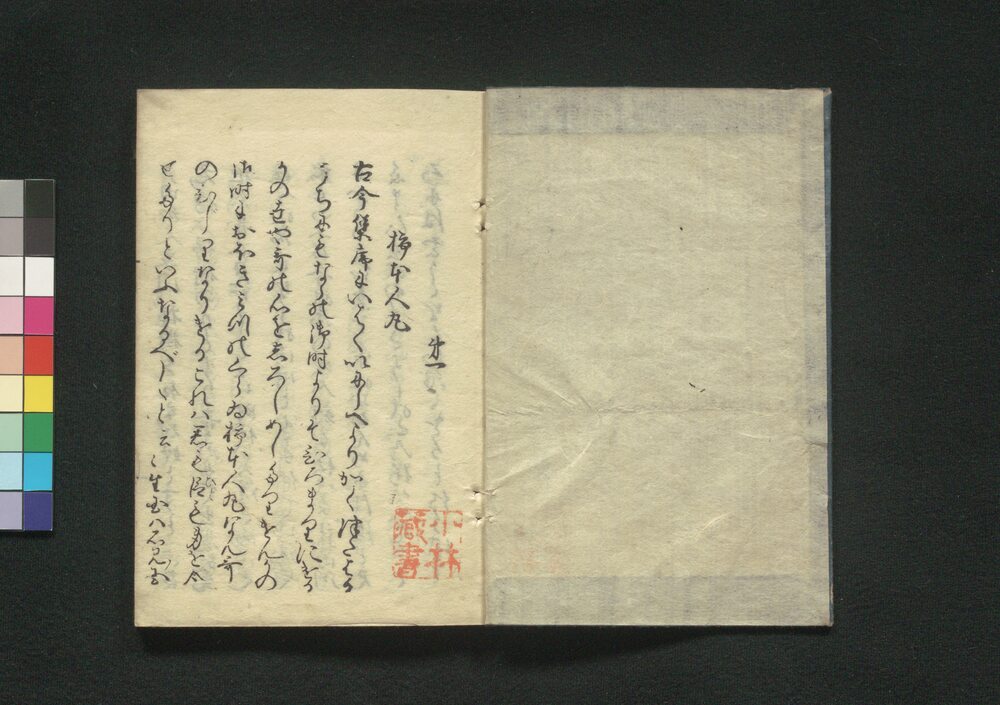 第一
柿本人丸
古今集序にいはくいにしへよりかくつたはる
うちにもならの御時よりそひろまりにける
かの世や哥の心をしろしめしたりけんかの
御時におほきみつのくらゐ柿本人丸なん哥
のひしりなりけるこれハ君も臣も身を合
せたりといふなるべしと云々生国ハ石見国
小林
藏書